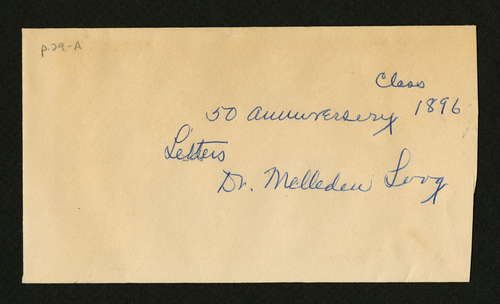 p.29-A
Class
50 anniversery 1896
Letters
Dr. McLleden Long